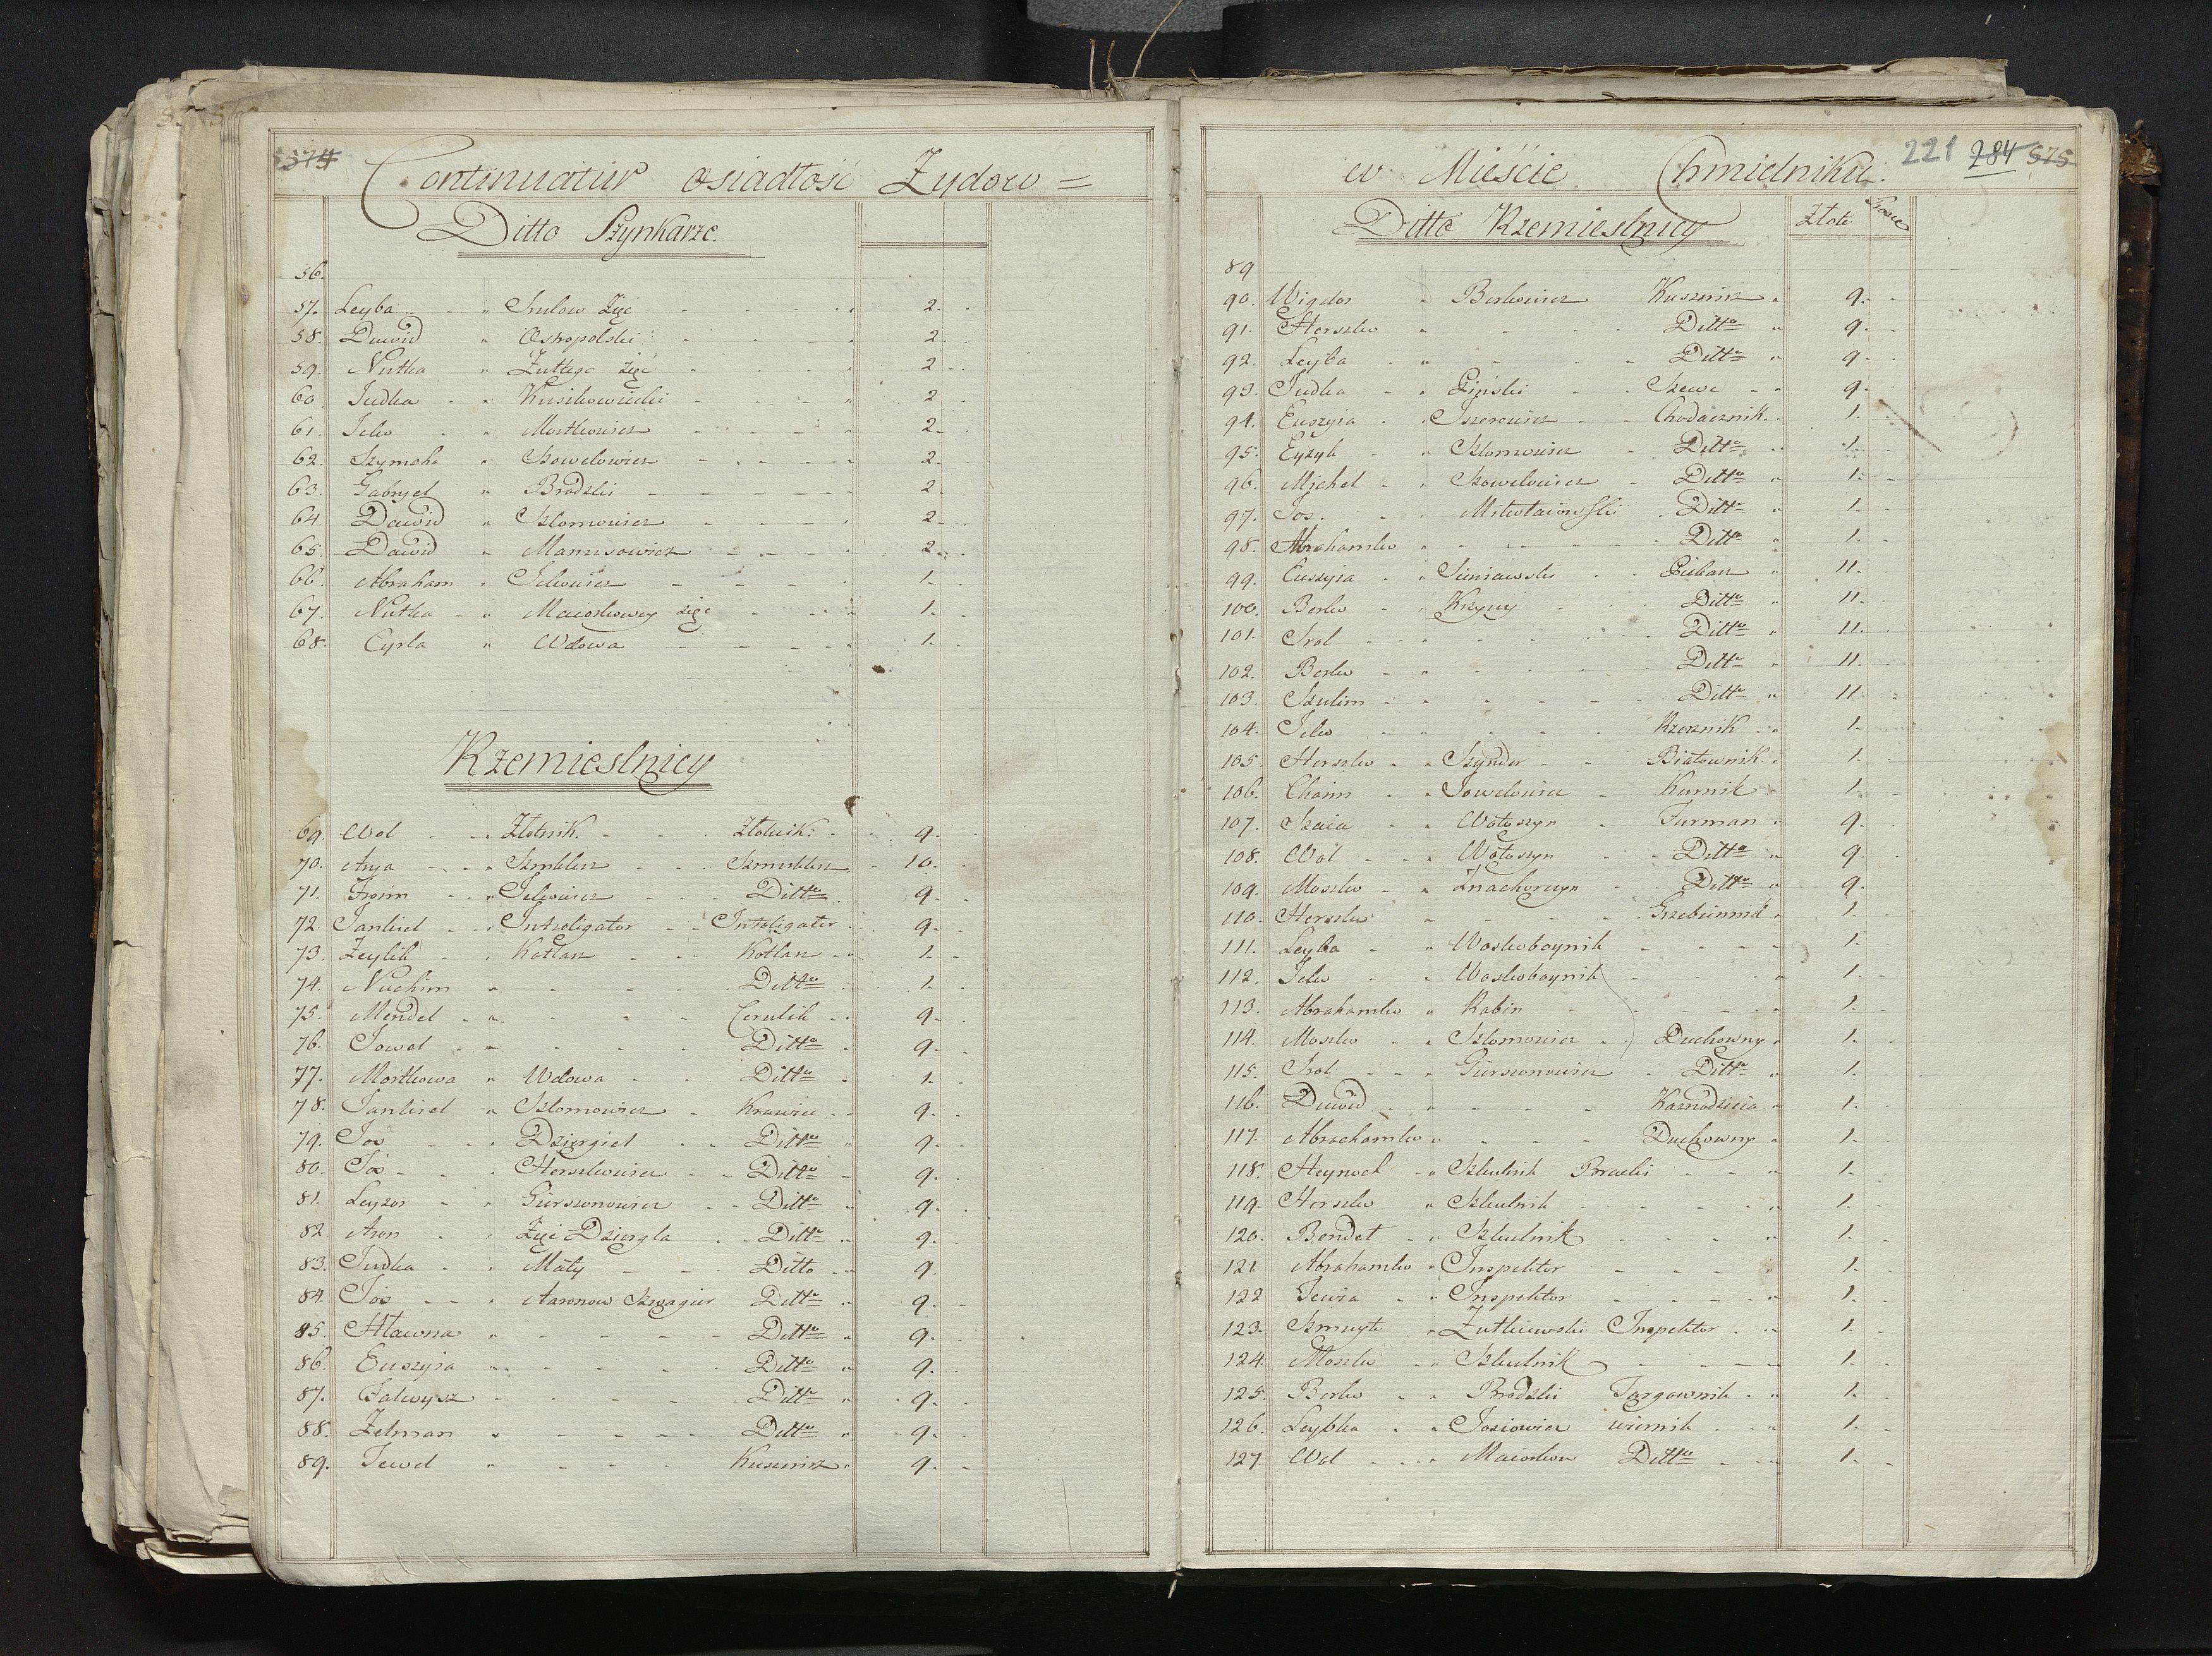 574
Continuatur osiadłość Żydow =
Ditto Szynkarze.
56.
57. Leyba Srulow Zięć 2.
58. Dawid Ostropolski 2
59. Nutka Zułtego zięć 2
60 Judka 2
61. Icko Mortkowicz 2.
62. Szymcha Szowelowicz 2.
63. Gabryel Brodzki 2.
64 Dawid Szlomowicz 2.
65. Dawid Manusowicz 2.
66. Abraham Ickowicz 1.
67. Nutka Maiorkowey zięć 1.
68. Cyrla Wdowa 1.
Rzemieslnicy
69. Wol Złotnik Złotnik 9.
70. Szmuklerz Szmuklerz 10.
71. Froim Ickowicz Ditto 9.
72. Jankiel Introligator Introligator 9.
73. Zeylik Kotlarz Kotlarz 1.
74. Nuchim Ditto 1.
75. Mendel Cerulik 9.
76. Jowel Ditto 9.
77. Mortkowa Wdowa Ditto 1.
78. Jankiel Szlomowicz Krawiec 9.
79. Jos Dziergiel Ditto 9.
80. Jos Herszkowicz Ditto 9.
81. Leyzor Gierszonowicz Ditto 9.
82. Aron Zięć Dziergla Ditto 9.
83. Judka Mały Ditto 9
84. Jos Aaronow Szwagier Ditto 9.
85. Hławna Ditto 9.
86. Euszyia Ditto 9.
87. Falwysz Ditto 9.
88. Zelman Ditto 9.
89. Jewel Kusznirz 9.
221 284 575
w Mieście Chmielniku.
Ditto Rzemieslnicy Złote Grosze
89
90. Wigdor Berkowicz Kusznirz 9.
91. Herszko Ditto 9.
92. Leyba Ditto 9.
93. Judka Piński Szewc 9.
94. Euszyia Iszerowicz Chodacznik 1.
95. Eyzyk Szlomowicz Ditto 1.
96. Michel Szowelowicz Ditto 1.
97. Jos Mikołaiowski Ditto 1.
98. Abrahamko Ditto 1.
99. Euszyia Sieniawski Piekarz 11.
100. Berko Krzywy Ditto 11.
101. Srol Ditto 11.
102. Berko Ditto 11.
103. Szulim Ditto 11.
104. Icko Rzeznik 1.
105. Herszko Szynder Białownik 1.
106. Chaim Jowelowicz Kurnik 1.
107. Szaia Wołoszyn Furman 9.
108. Wol Wołoszyn Ditto 9.
109. Moszko Znachorczyn Ditto 9.
110. Herszko 1.
111. Leyba Woskoboynik 1.
112. Icko Woskoboynik 1.
113. Abrahamko Rabin 1.
114. Moszko Szlomowicz Duchowny 1.
115. Srol Gierszonowicz Ditto 1.
116. Dawid Kaznodzieia 1.
117. Abrachamko Duchowny 1.
118. Heynoch Szkulnik 1.
119. Herszko Szkulnik 1.
120. Bendet Szkulnik 1.
121 Abrahamko Inspektor 1.
122 Tewia Inspektor 1.
123. Szmuyło Zutkiewski Inspektor 1.
124. Moszko Szkulnik 1.
125. Berko Brodzki Targownik 1.
126. Leybka Josiowicz wiernik 1.
127. Wol Maiorkow Ditto 1.